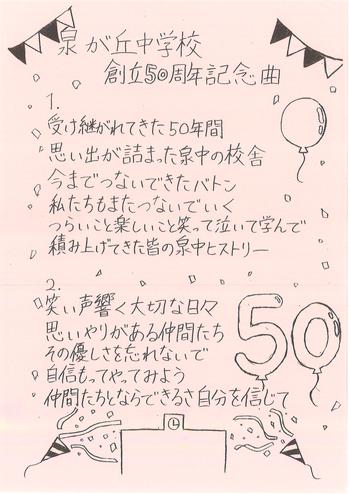 泉が丘中学校
創立50周年記念曲
1.
受け継がれてきた50年間
思い出が詰まった泉中の校舎
今までつないできたバトン
私たちもまたつないでいく
つらいこと楽しいこと笑って泣いて学んで
積み上げてきた皆の泉中ヒストリー
2.
笑い声響く大切な日々
思いやりがある仲間たち
その優しさを忘れないで
自信もってやってみよう
仲間たちとならできるさ自分を信じて
50